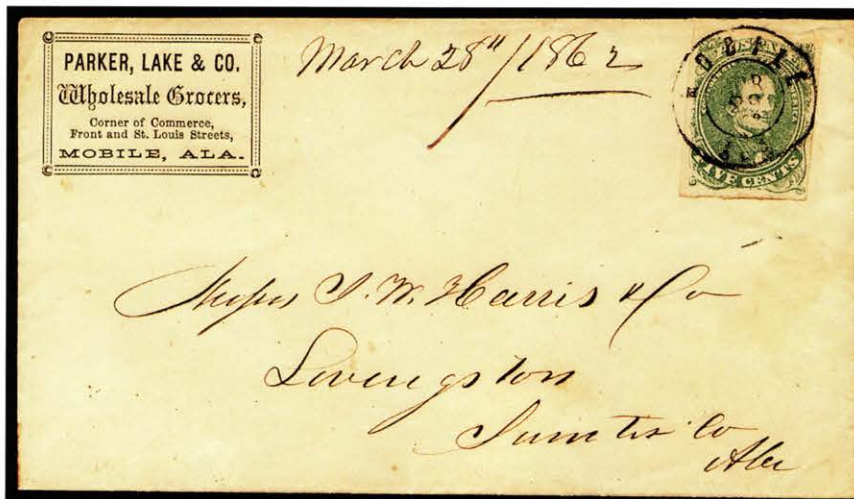 PARKER, LAKE & CO.
Wholesale Grocers,
Corner of Commerce,
Front and St. Louis Streets,
MOBILE, ALA.
March 28"/1862
MOBILE
ALA
CENTS
Messrs J. W. Harris & Co
Livingston
Sumter Co
Ala